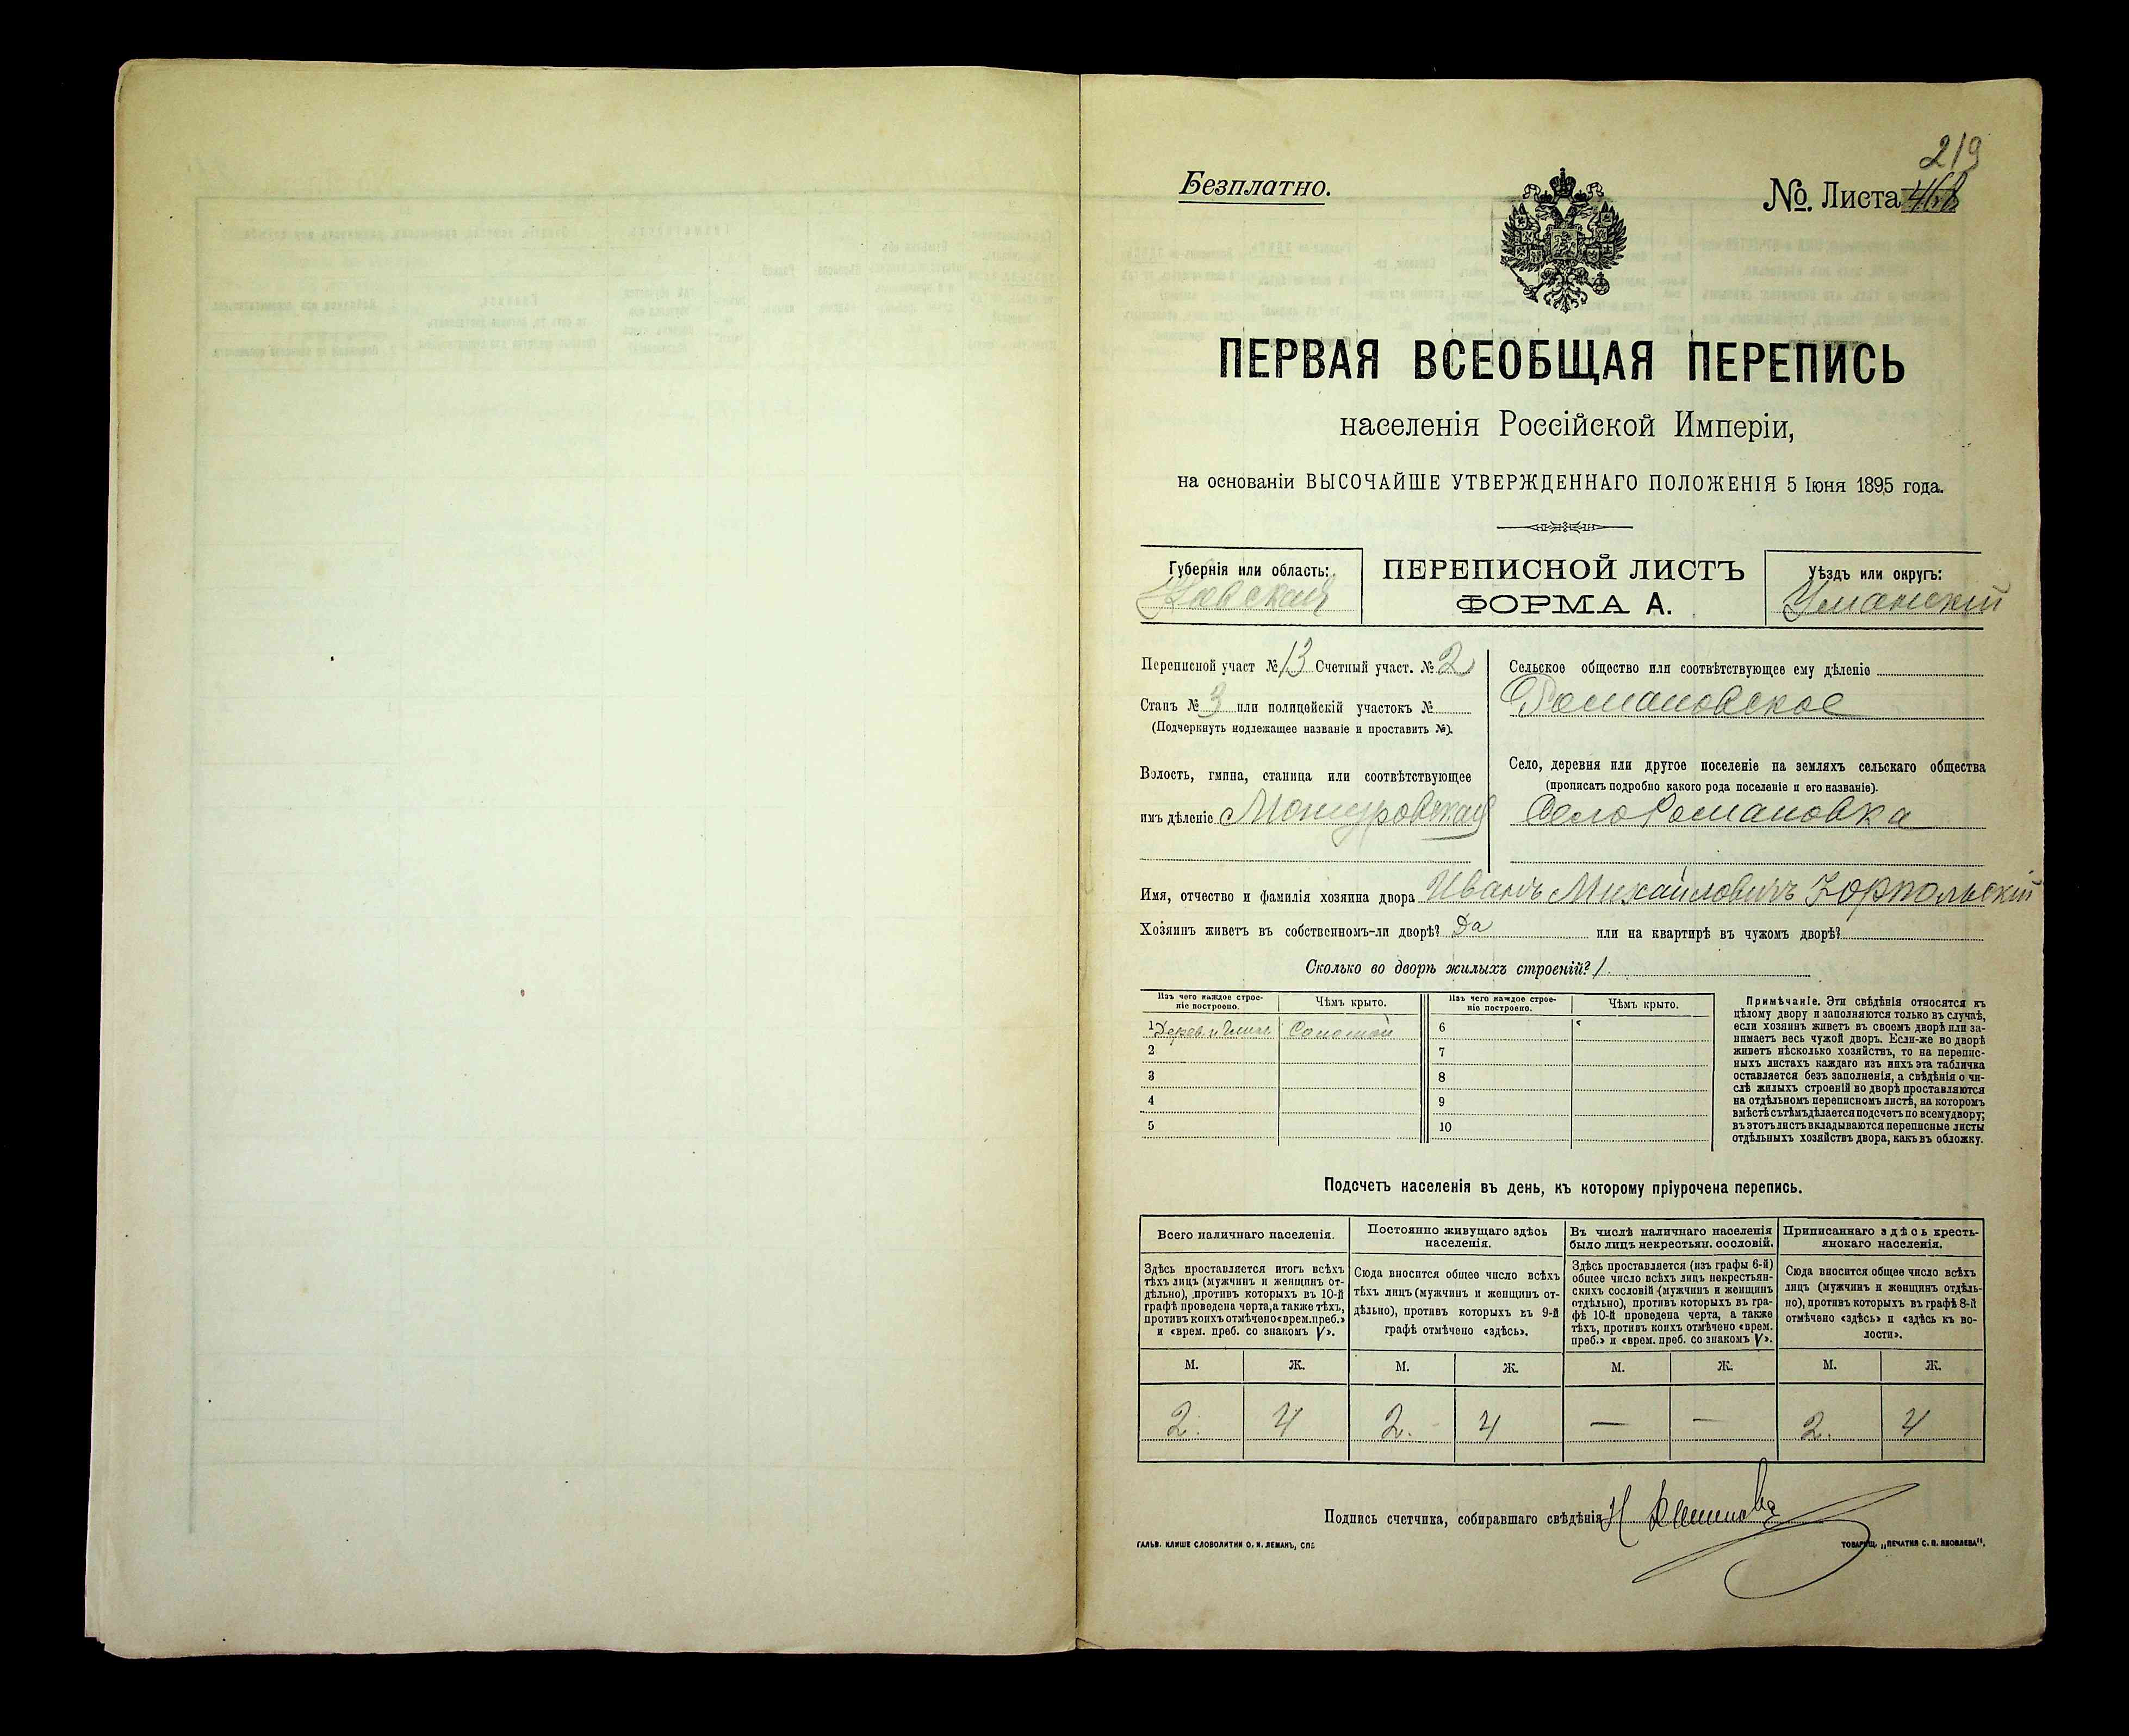 219
Безплатно.
№ Листа 468
ПЕРВАЯ ВСЕОБЩАЯ ПЕРЕПИСЬ
населенія Россійской Имперіи,
на основаніи ВЫСОЧАЙШЕ УТВЕРЖДЕННАГО ПОЛОЖЕНІЯ 5 Іюня 1895 года.
Губернія или область:
Кіевская
ПЕРЕПИСНОЙ ЛИСТЪ
ФОРМА А.
Уѣздъ или округъ:
Уманскій
Переписной участ № 13 Счетный участ. № 2
Станъ № 3 или полицейскій участокъ №
(Подчеркнуть подлежащее названіе и проставить №).
Волость, гмина, станица или соотвѣтствующее
имъ дѣленіе Мошуровская
Сельское общество или соотвѣтствующее ему дѣленіе
Романовское
Село, деревня или другое поселеніе на земляхъ сельскаго общества
(прописать подробно какого рода поселеніе и его названіе).
Село Романовка
Имя, отчество и фамилія хозяина двора Иванъ Михайловичъ
Хозяинъ живетъ въ собственномъ-ли дворѣ? Да или на квартирѣ въ чужомъ дворѣ?
Сколько во дворѣ жилыхъ строеній? 1
Изъ чего каждое строе-
ніе построено.
Чѣмъ крыто.
Изъ чего каждое строе-
ніе построено.
Чѣмъ крыто.
1 Дерев. и глин. Соломой 6
2 7
3 8
4 9
5 10
Примѣчаніе. Эти свѣдѣнія относятся къ
цѣлому двору и заполняются только въ случаѣ,
если хозяинъ живетъ въ своемъ дворѣ или за-
нимаетъ весь чужой дворъ. Если-же во дворѣ
живетъ нѣсколько хозяйствъ, то на перепис-
ныхъ листахъ каждаго изъ нихъ эта табличка
оставляется безъ заполненія, а свѣдѣнія о чи-
слѣ жилыхъ строеній во дворѣ проставляются
на отдѣльномъ переписномъ листѣ, на которомъ
вмѣстѣ съ тѣмъ дѣлается подсчетъ по всему двору;
въ этотъ листъ вкладываются переписные листы
отдѣльныхъ хозяйствъ двора, какъ въ обложку.
Подсчетъ населенія въ день, къ которому пріурочена перепись.
Всего наличнаго населенія.
Здѣсь проставляется итогъ всѣхъ
тѣхъ лицъ (мужчинъ и женщинъ от-
дѣльно), противъ которыхъ въ 10-й
графѣ проведена черта, а также тѣхъ,
противъ коихъ отмѣчено «врем. преб.»
и «врем. преб. со знакомъ V».
Постоянно живущаго здѣсь
населенія.
Сюда вносится общее число всѣхъ
тѣхъ лицъ (мужчинъ и женщинъ от-
дѣльно), противъ которыхъ въ 9-й
графѣ отмѣчено «здѣсь».
Въ числѣ наличнаго населенія
было лицъ некрестьян. сословій.
Здѣсь проставляется (изъ графы 6-й)
общее число всѣхъ лицъ некрестьян-
скихъ сословій (мужчинъ и женщинъ
отдѣльно), противъ которыхъ въ гра-
фѣ 10-й проведена черта, а также
тѣхъ, противъ коихъ отмѣчено «врем.
преб.» и «врем. преб. со знакомъ V».
Приписаннаго здѣсь кресть-
янскаго населенія.
Сюда вносится общее число всѣхъ
лицъ (мужчинъ и женщинъ отдѣль-
но), противъ которыхъ въ графѣ 8-й
отмѣчено «здѣсь» и «здѣсь къ во-
лости».
М. Ж. М. Ж. М. Ж. М. Ж.
2. 4 2. 4 — — 2. 4
Подпись счетчика, собиравшаго свѣдѣнія
ГАЛЬВ. КЛИШЕ СЛОВОЛИТНИ О. И. ЛЕМАНЪ, СПБ
ТОВАРИЩ. „ПЕЧАТНЯ С. П. ЯКОВЛЕВА".